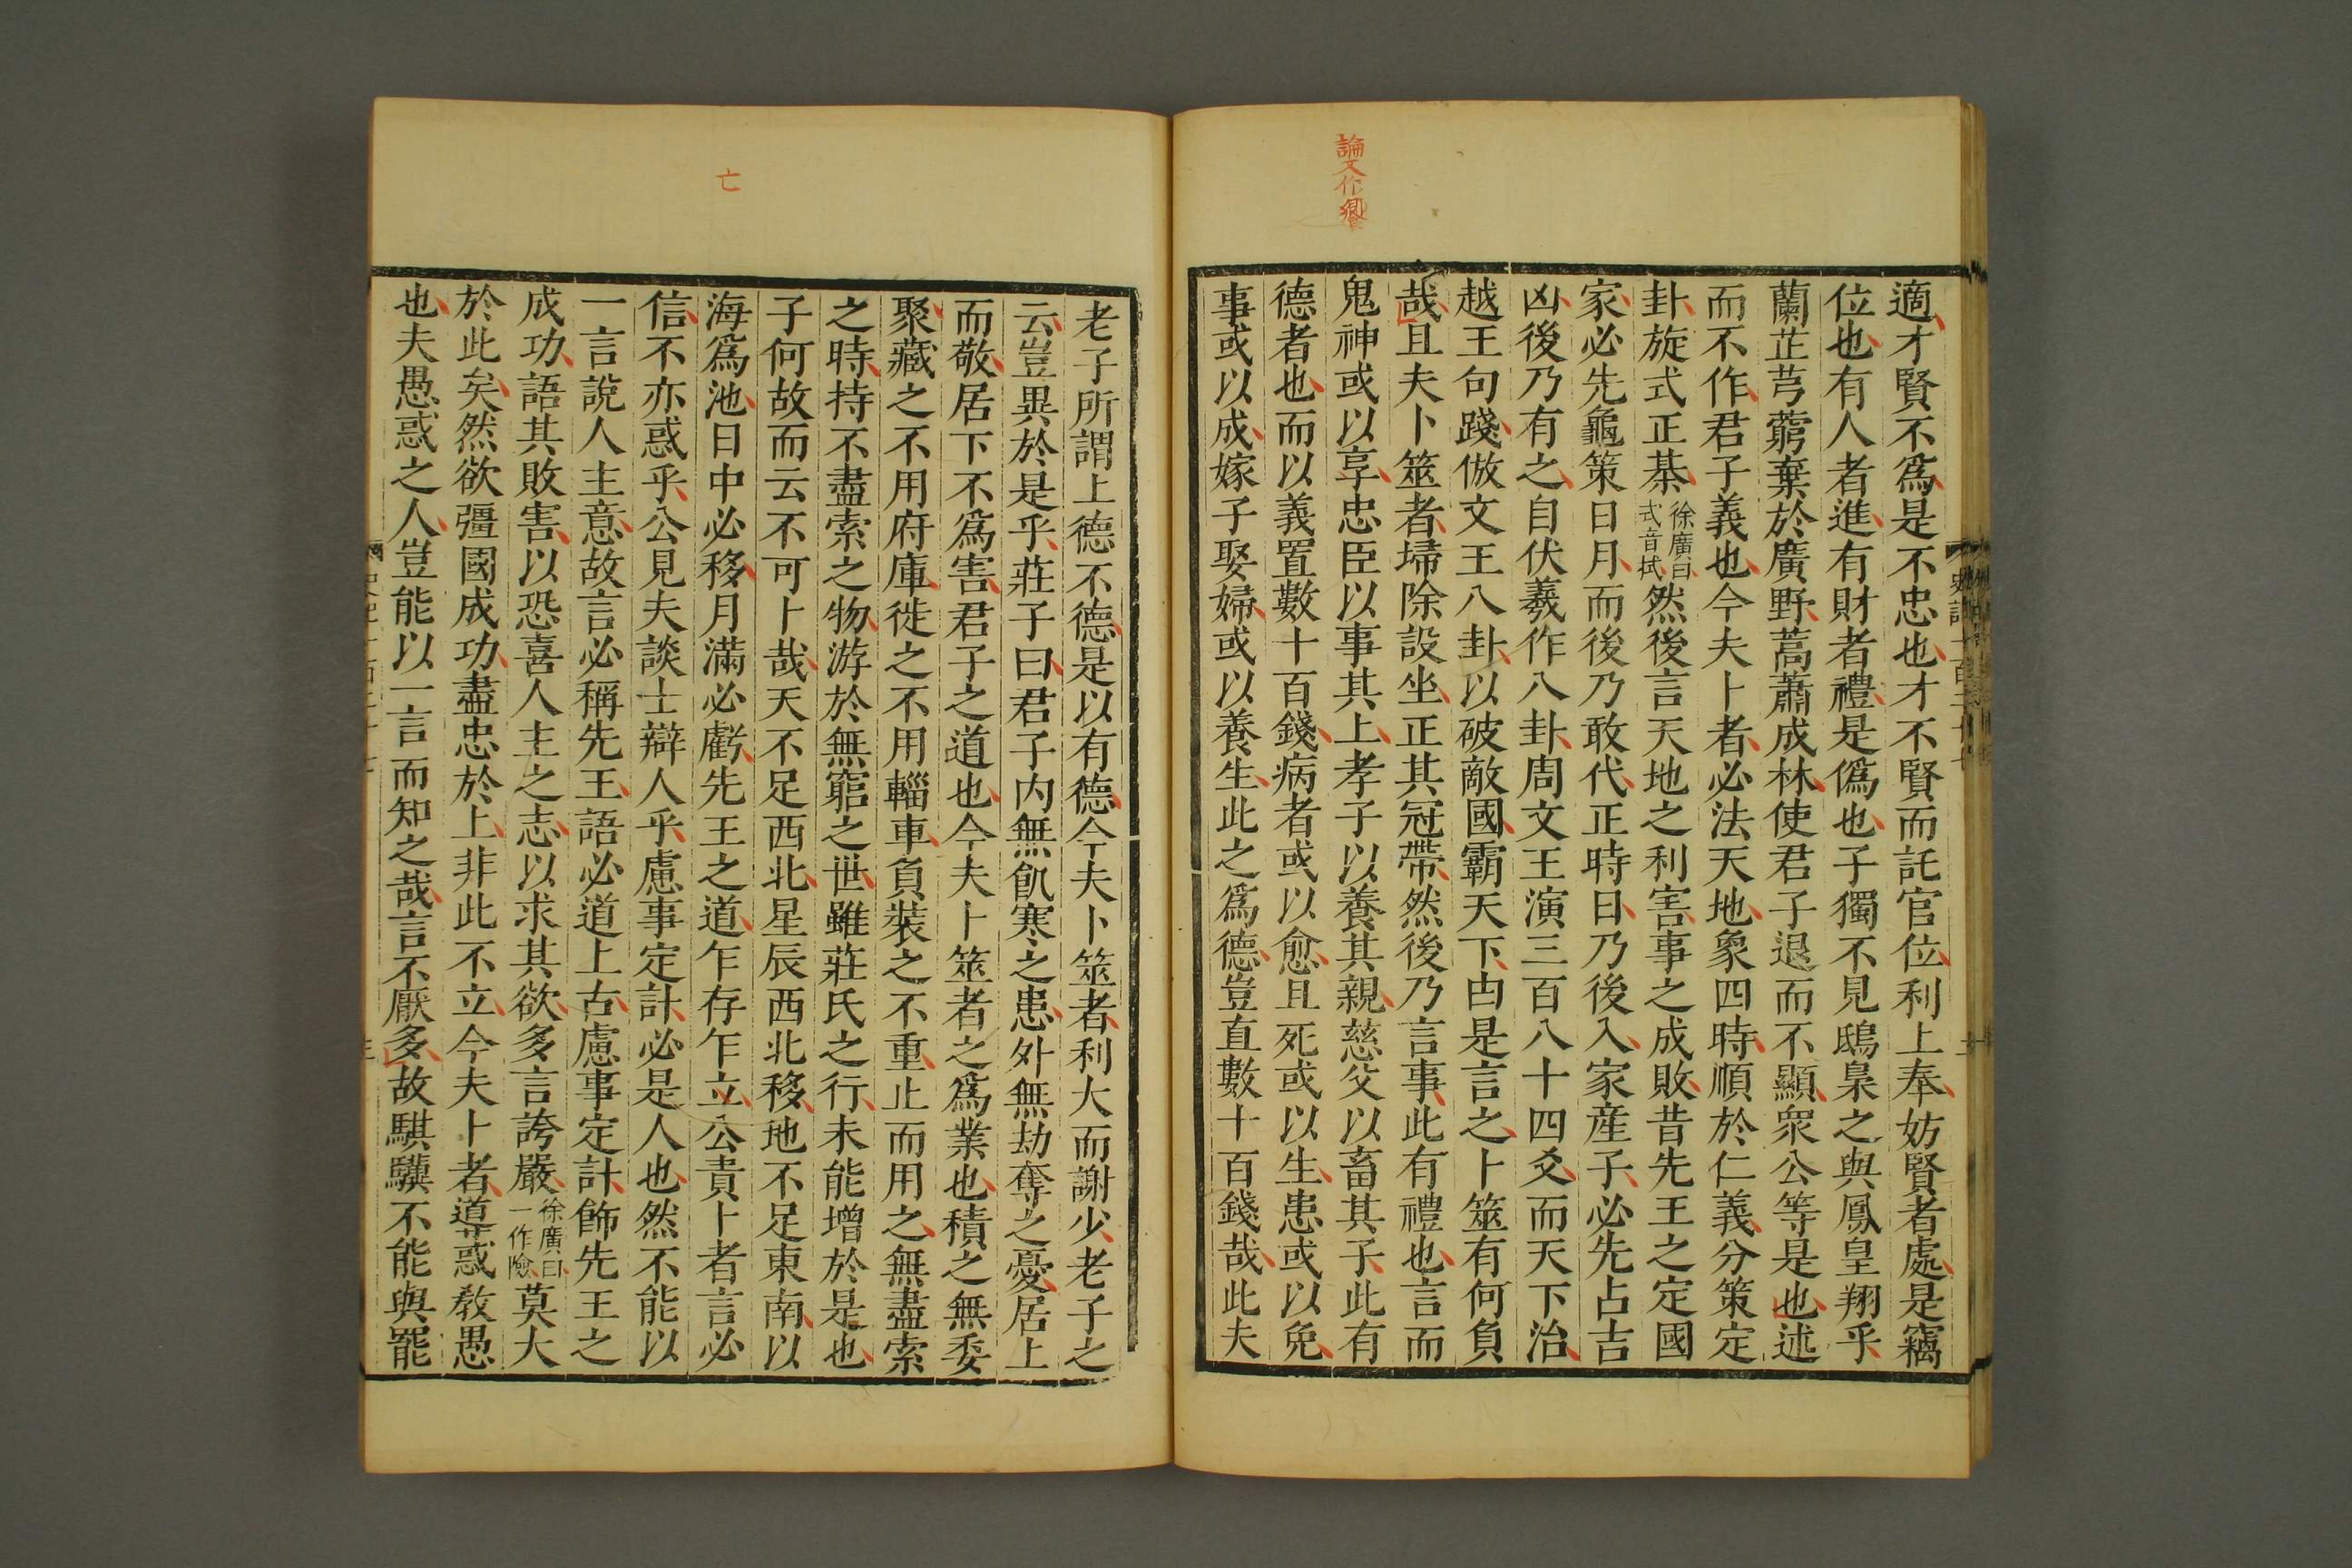 論文作饗
適才賢不爲是不忠也才不賢而託官位利上奉妨賢者處是竊
位也有人者進有財者禮是僞也子獨不見鴟梟之與鳳皇翔乎
蘭芷芎藭棄於廣野蒿蕭成林使君子退而不顯衆公等是也述
而不作君子義也今夫卜者必法天地象四時順於仁義分策定
卦旋式正棊徐廣曰式音拭然後言天地之利害事之成敗昔先王之定國
家必先龜策日月而後乃敢代正時日乃後入家產子必先占吉
凶後乃有之自伏羲作八卦周文王演三百八十四爻而天下治
越王句踐倣文王八卦以破敵國霸天下由是言之卜筮有何負
哉且夫卜筮者埽除設坐正其冠帶然後乃言事此有禮也言而
鬼神或以享忠臣以事其上孝子以養其親慈父以畜其子此有
德者也而以義置數十百錢病者或以愈且死或以生患或以免
事或以成嫁子娶婦或以養生此之爲德豈直數十百錢哉此夫
亡
老子所謂上德不德是以有德今夫卜筮者利大而謝少老子之
云豈異於是乎莊子曰君子內無飢寒之患外無劫奪之憂居上
而敬居下不爲害君子之道也今夫卜筮者之爲業也積之無委
聚藏之不用府庫徙之不用輜車負裝之不重止而用之無盡索
之時持不盡索之物游於無窮之世雖莊氏之行未能增於是也
子何故而云不可卜哉天不足西北星辰西北移地不足東南以
海爲池日中必移月滿必虧先王之道乍存乍立公責卜者言必
信不亦惑乎公見夫談士辯人乎慮事定計必是人也然不能以
一言說人主意故言必稱先王語必道上古慮事定計飾先王之
成功語其敗害以恐喜人主之志以求其欲多言誇嚴徐廣曰一作險莫大
於此矣然欲彊國成功盡忠於上非此不立今夫卜者導惑敎愚
也夫愚惑之人豈能以一言而知之哉言不厭多故騏驥不能與罷